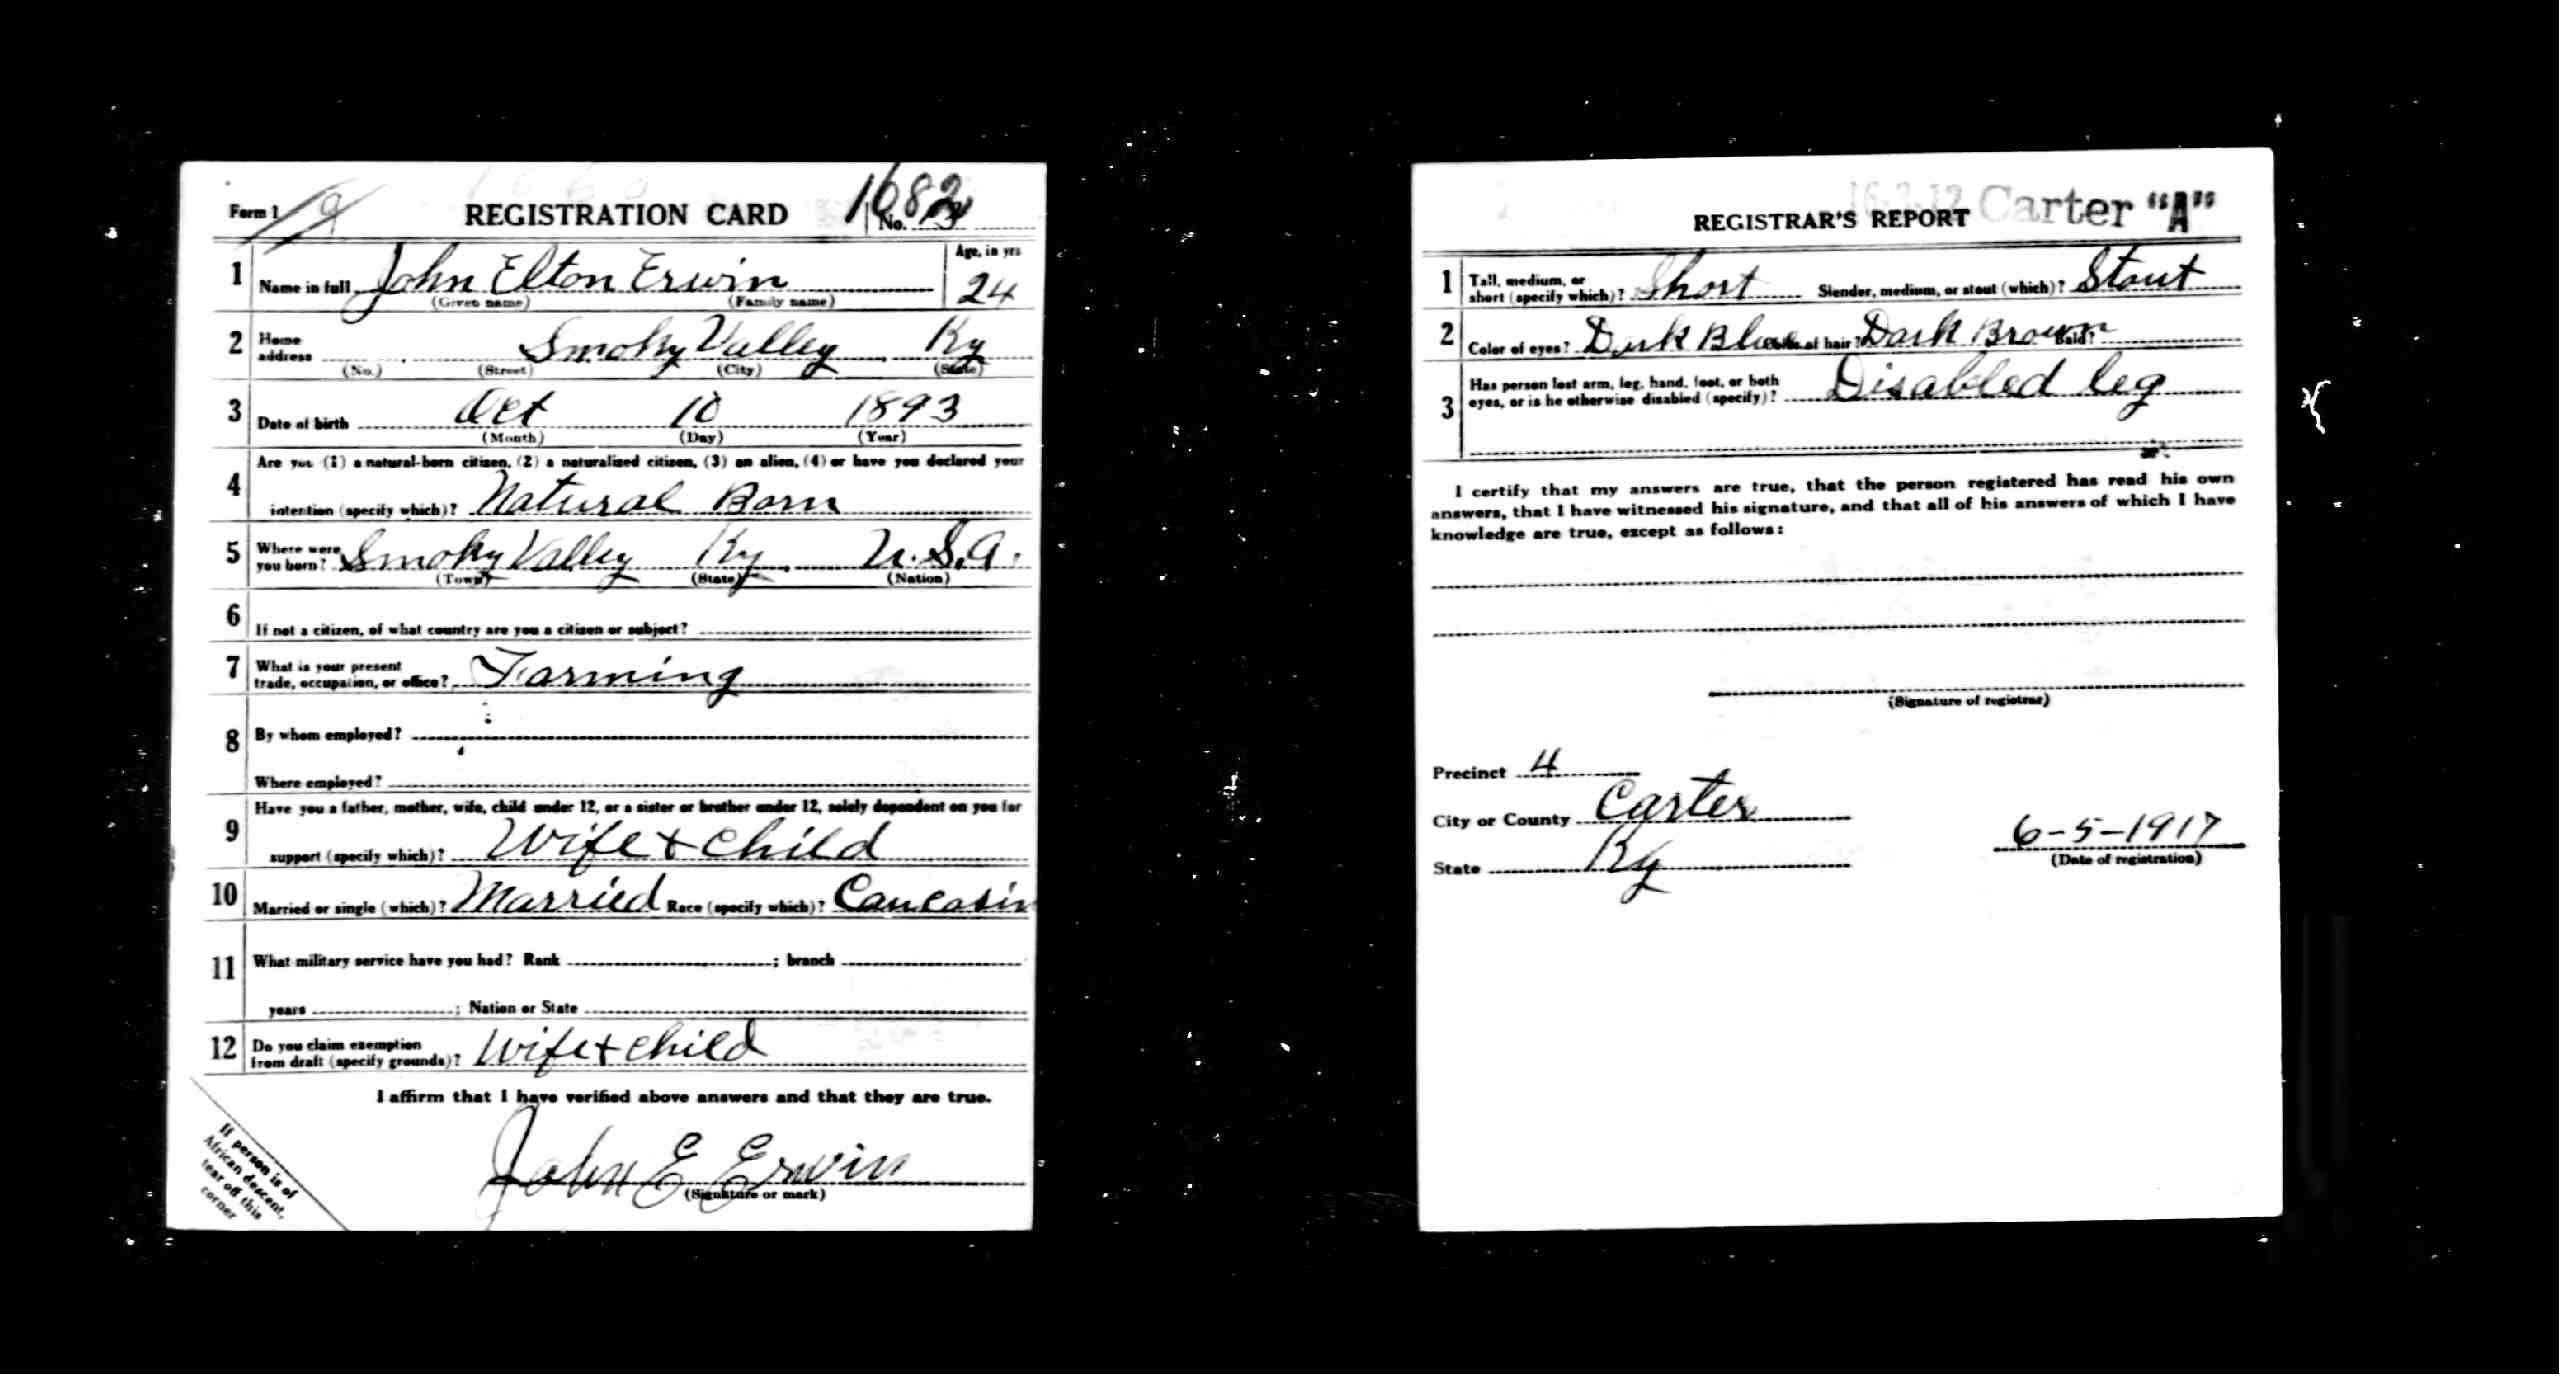 Form 1 REGISTRATION CARD 1682
No. 3
1 Name in full John Elton Erwin Age, in yrs 24
(Given name) (Family name)
2 Home address Smoky Valley Ky
(No.) (Street) (City) (State)
3 Date of birth Oct 10 1893
(Month) (Day) (Year)
4 Are you (1) a natural-born citizen, (2) a naturalized citizen, (3) an alien, (4) or have you declared your
intention (specify which)? Natural Born
5 Where were you born? Smoky Valley Ky. U.S.A.
(Town) (State) (Nation)
6 If not a citizen, of what country are you a citizen or subject?
7 What is your present trade, occupation, or office? Farming
8 By whom employed?
Where employed?
9 Have you a father, mother, wife, child under 12, or a sister or brother under 12, solely dependent on you for
support (specify which)? Wife + child
10 Married or single (which)? Married Race (specify which)? Caucasin
11 What military service have you had? Rank ; branch
years ; Nation or State
12 Do you claim exemption from draft (specify grounds)? Wife + child
I affirm that I have verified above answers and that they are true.
John E Erwin
(Signature or mark)
If person is of
African descent,
tear off this
corner
REGISTRAR'S REPORT Carter "A"
1 Tall, medium, or short (specify which)? Short Slender, medium, or stout (which)? Stout
2 Color of eyes? Dark Blue Color of hair? Dark Brown Bald?
3 Has person lost arm, leg, hand, foot, or both
eyes, or is he otherwise disabled (specify)? Disabled leg
I certify that my answers are true, that the person registered has read his own
answers, that I have witnessed his signature, and that all of his answers of which I have
knowledge are true, except as follows:
(Signature of registrar)
Precinct 4
City or County Carter
State Ky
6-5-1917
(Date of registration)